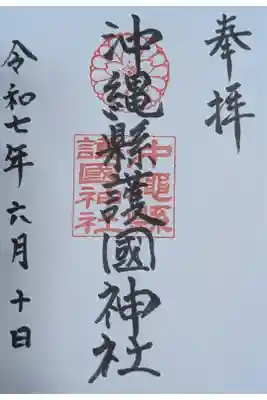 奉拝
沖縄縣護國神社
沖縄縣
護國神社
令和七年六月十日